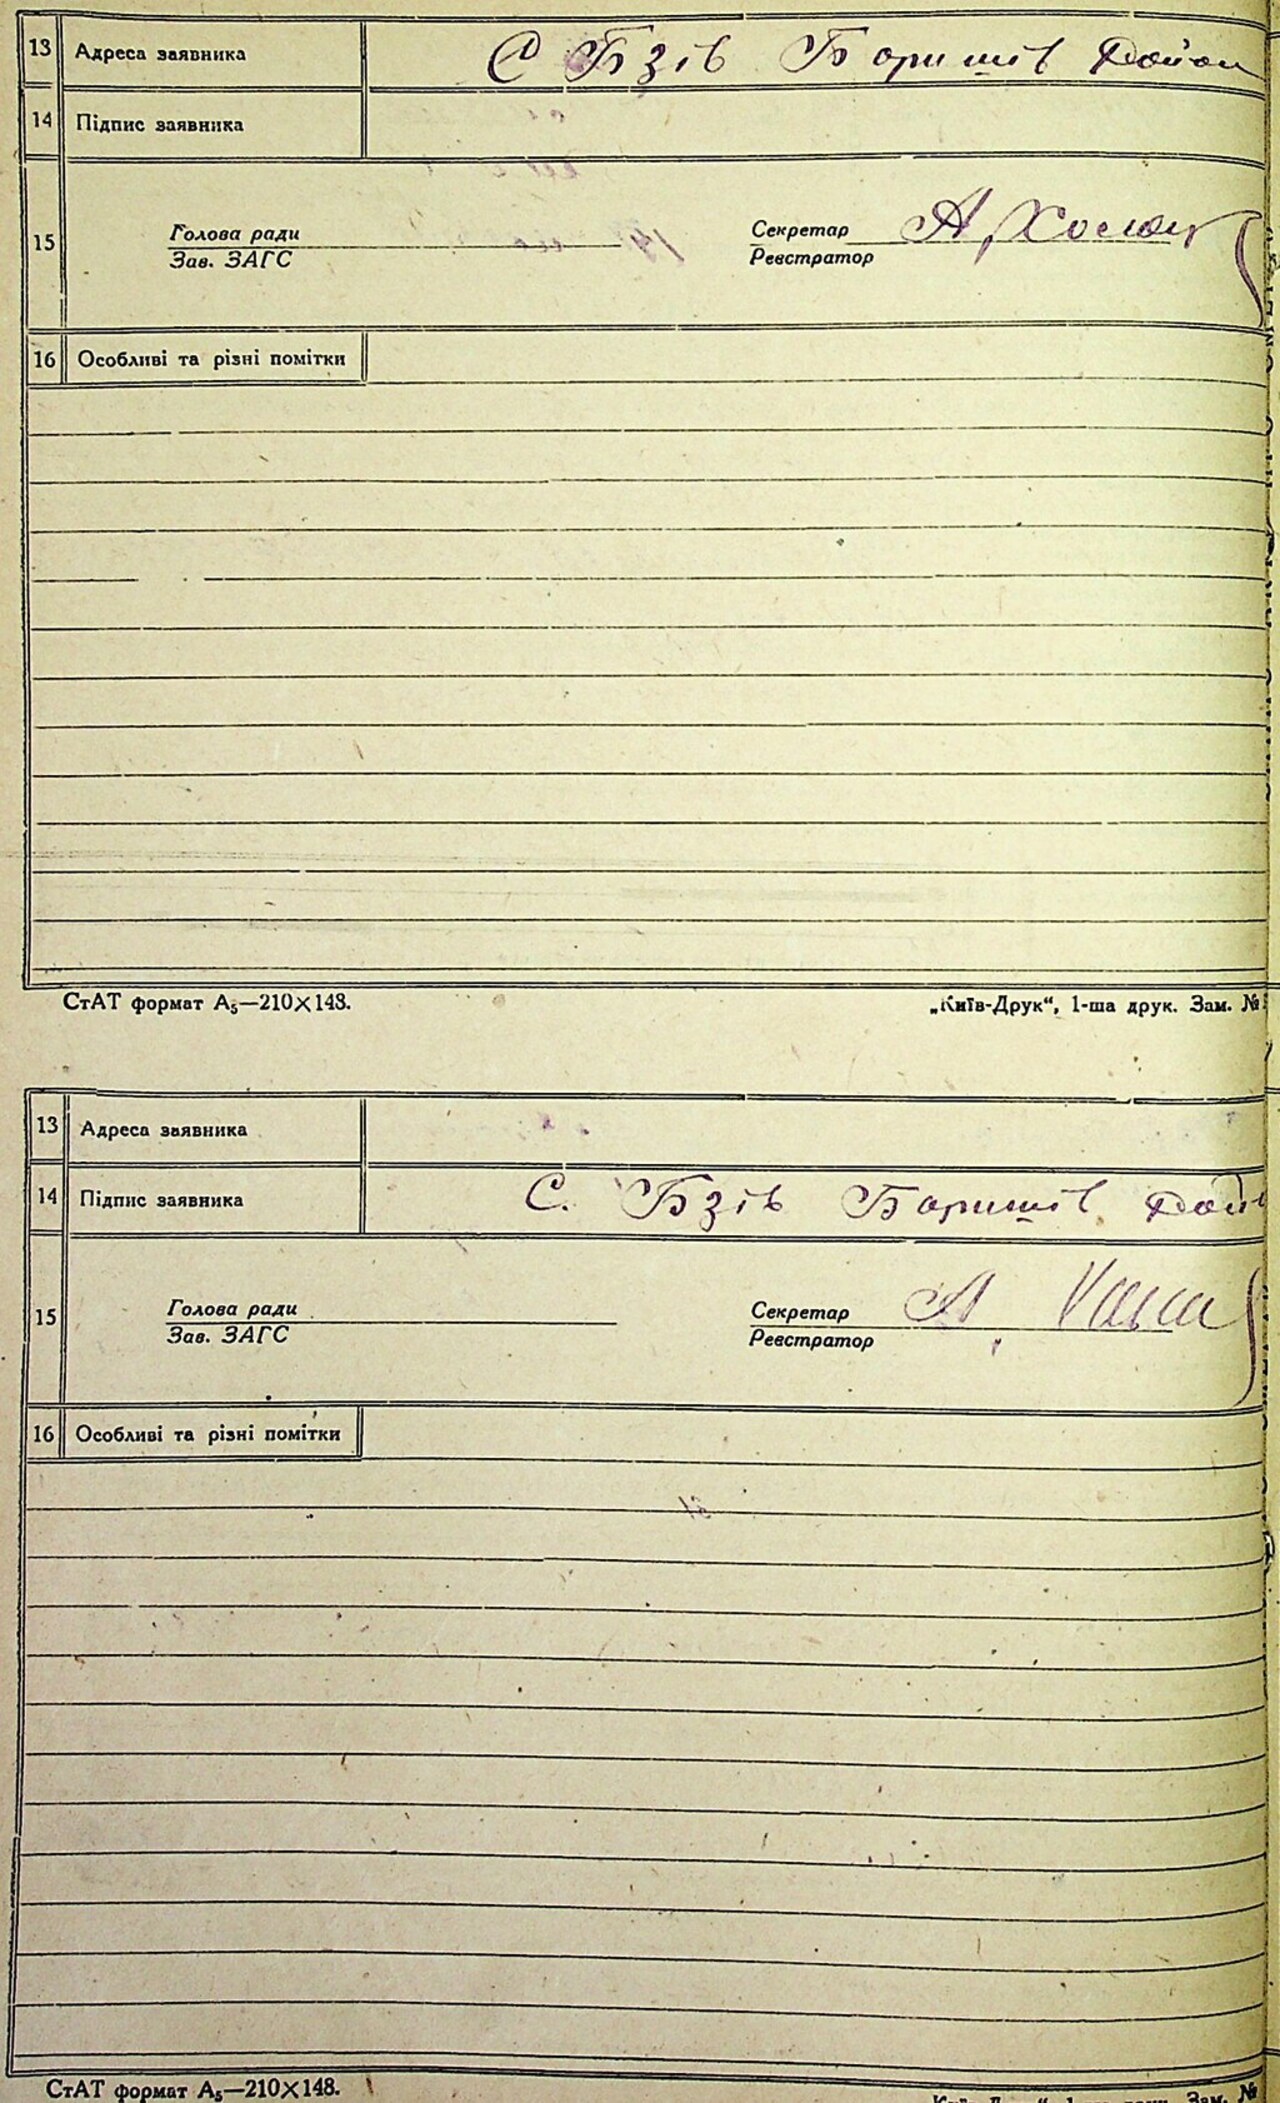 13 Адреса заявника С Бзів Баришів Район
14 Підпис заявника
15 Голова ради Секретар А.
Зав. ЗАГС Реєстратор
16 Особливі та різні помітки
СтАТ формат А₅—210×148. „Київ-Друк“, 1-ша друк. Зам. №
13 Адреса заявника
14 Підпис заявника С. Бзів Баришів Рай
15 Голова ради Секретар А.
Зав. ЗАГС Реєстратор
16 Особливі та різні помітки
СтАТ формат А₅—210×148. Зам. №